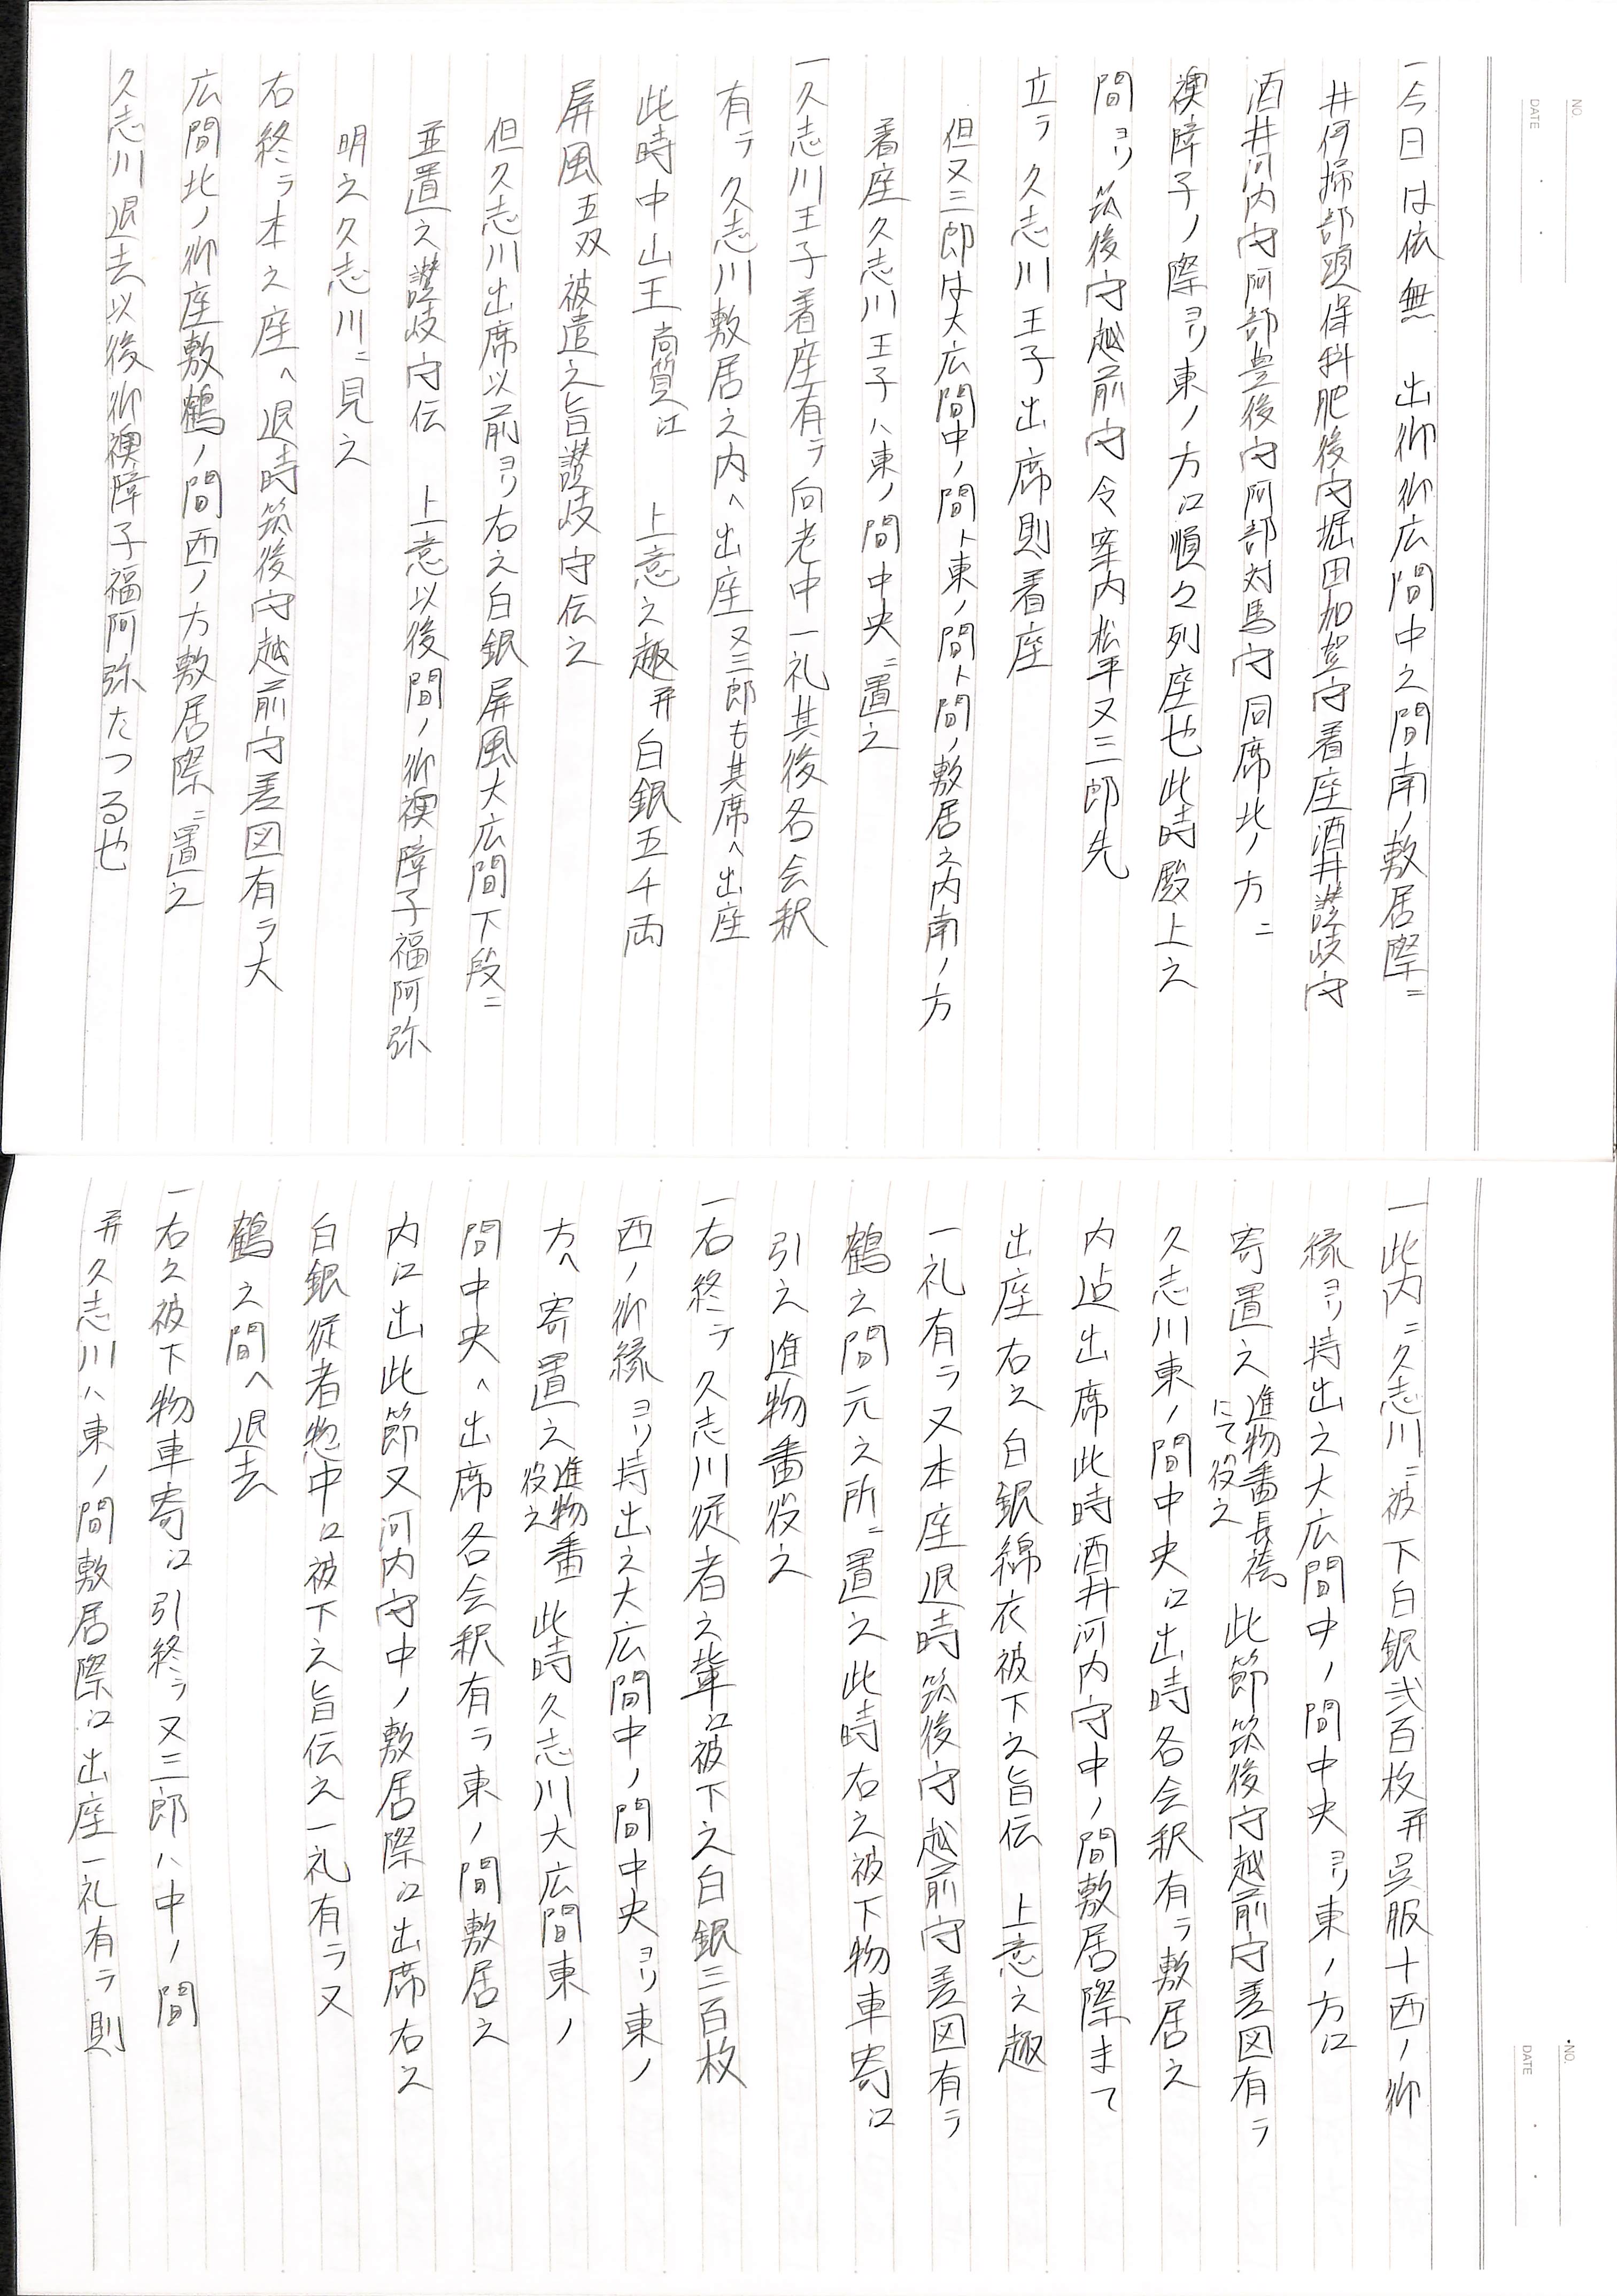 NO.
DATE
一今日は依無　出御御広間中之間南ノ敷居際ニ
井伊掃部頭保科肥後守堀田加賀守着座酒井讃岐守
酒井河内守阿部豊後守阿部対馬守同席北ノ方ニ
襖障子ノ際ヨリ東ノ方江順々列座也此時殿上之
間ヨリ筑後守越前守令案内松平又三郎先
立テ久志川王子出席則着座
但又三郎は大広間中ノ間ト東ノ間ト間ノ敷居之内南ノ方
着座久志川王子ハ東ノ間中央ニ置之
一久志川王子着座有テ向老中一礼其後各会釈
有テ久志川敷居之内ヘ出座又三郎も其席ヘ出座
此時中山王尚質江　上意之趣并白銀五千両
屏風五双被遣之旨讃岐守伝之
但久志川出席以前ヨリ右之白銀屏風大広間下段ニ
並置之讃岐守伝　上意以後間ノ御襖障子福阿弥
明之久志川ニ見之
右終テ本之座ヘ退時筑後守越前守差図有テ大
広間北ノ御座敷鶴ノ間西ノ方敷居際ニ置之
久志川退去以後御襖障子福阿弥たつる也
NO.
DATE
一此内ニ久志川ニ被下白銀弐百枚并呉服十西ノ御
縁ヨリ持出之大広間中ノ間中央ヨリ東ノ方江
寄置之進物番長袴にて役之此節筑後守越前守差図有テ
久志川東ノ間中央江出時各会釈有テ敷居之
内迠出席此時酒井河内守中ノ間敷居際まて
出座右之白銀綿衣被下之旨伝　上意之趣
一礼有テ又本座退時筑後守越前守差図有テ
鶴之間元之所ニ置之此時右之被下物車寄江
引之進物番役之
一右終テ久志川従者之輩江被下之白銀三百枚
西ノ御縁ヨリ持出之大広間中ノ間中央ヨリ東ノ
方ヘ寄置之進物番役之此時久志川大広間東ノ
間中央ヘ出席各会釈有テ東ノ間敷居之
内江出此節又河内守中ノ敷居際江出席右之
白銀従者惣中江被下之旨伝之一礼有テ又
鶴之間ヘ退去
一右之被下物車寄江引終テ又三郎ハ中ノ間
并久志川ハ東ノ間敷居際江出座一礼有テ則